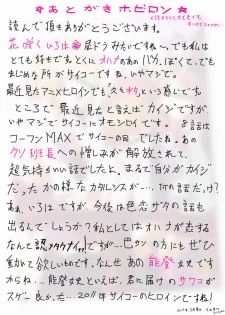 ☆あとがきホビロン☆
読んで頂きありがとうございます。
花咲くいろは 昼ドラみたいですね〜、でも私は
とても好きです。とくにオハナのあのバカ、ぽくって、でも
まじめな所がサイコーですね、いやマジで。
最近見たアニメヒロインでも、という感じです。
ところで最近見たと言えばカイジですが、
いやマジでサイコーにオモシロイです。 8話は
コーフンMAXでサイコーの回でしたね。あの
クソ班長への憎しみが解放されて、
超気持ちいい話でしたよ、まるで自分がカイジ
だったかの様なカタルシスが…、何の話だっけ?
あぁ、いろは ですが、今後は色恋ザタの話も
出るんでしょうか?私としてはオハナが恋する
なんて認メタクナイ!!ですが…巴サンの方にもぜひ
動いて欲しいものです、なんせあの能登女史です
からね…、能登女史といえば、君に届けのサワコが
スゲー良かった…、2011年サイコーのヒロインですね!